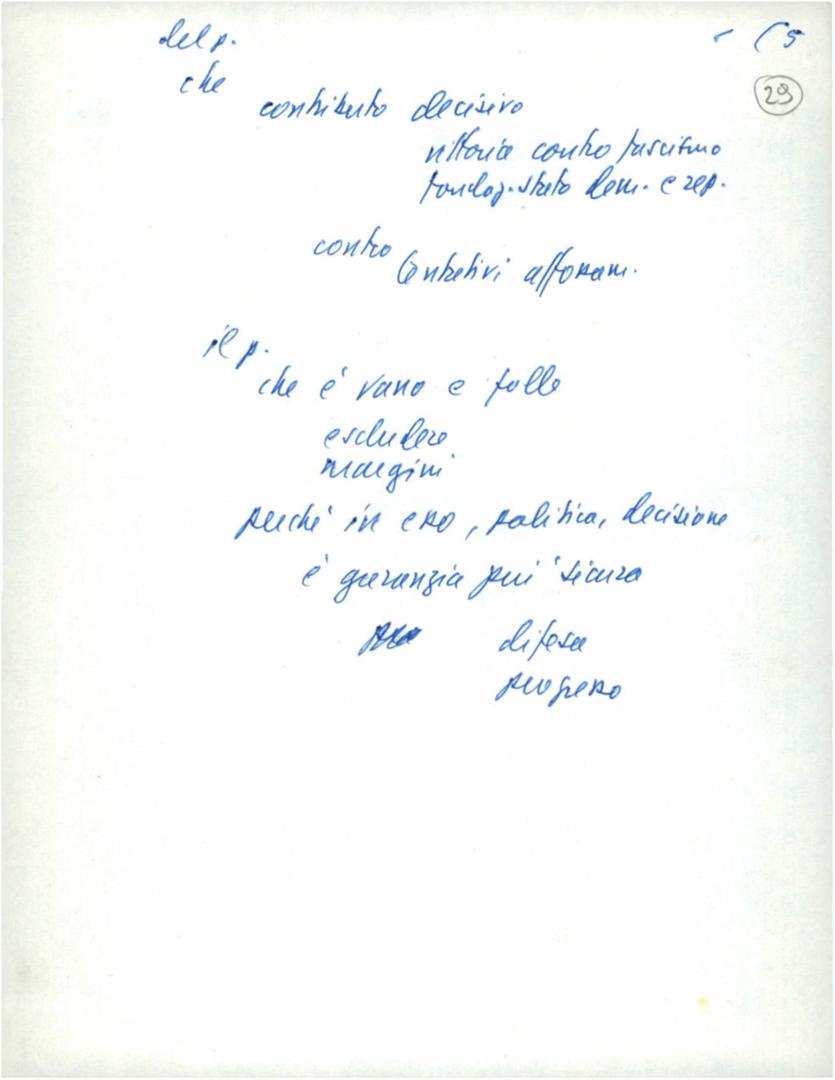 del p.
(5
29
che
contributo decisivo
vittoria contro fascismo
fondaz. stato dem. e rep.
contro
tentativi affossam.
il p.
che è vano e folle
escludere
margini
perché in esso, politica, decisione
è garanzia più sicura
difesa
progresso